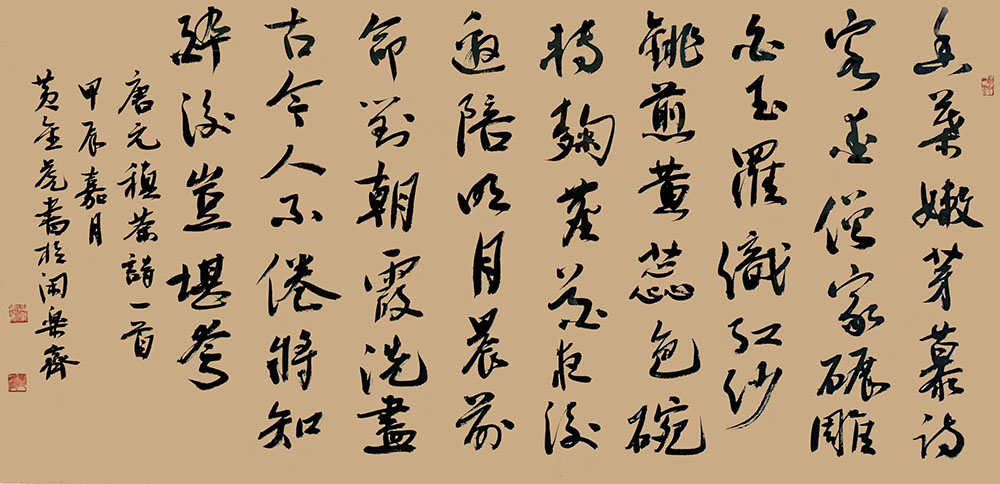 香葉嫩芽慕詩
客愛僧家碾雕
白玉羅織紅紗
銚煎黄蕊色碗
轉麴塵花夜後
邀陪明月晨前
命對朝霞洗盡
古今人不倦將知
醉後豈堪夸
唐元稹茶詩一首
甲辰嘉月
黄金虎書於闲樂齋